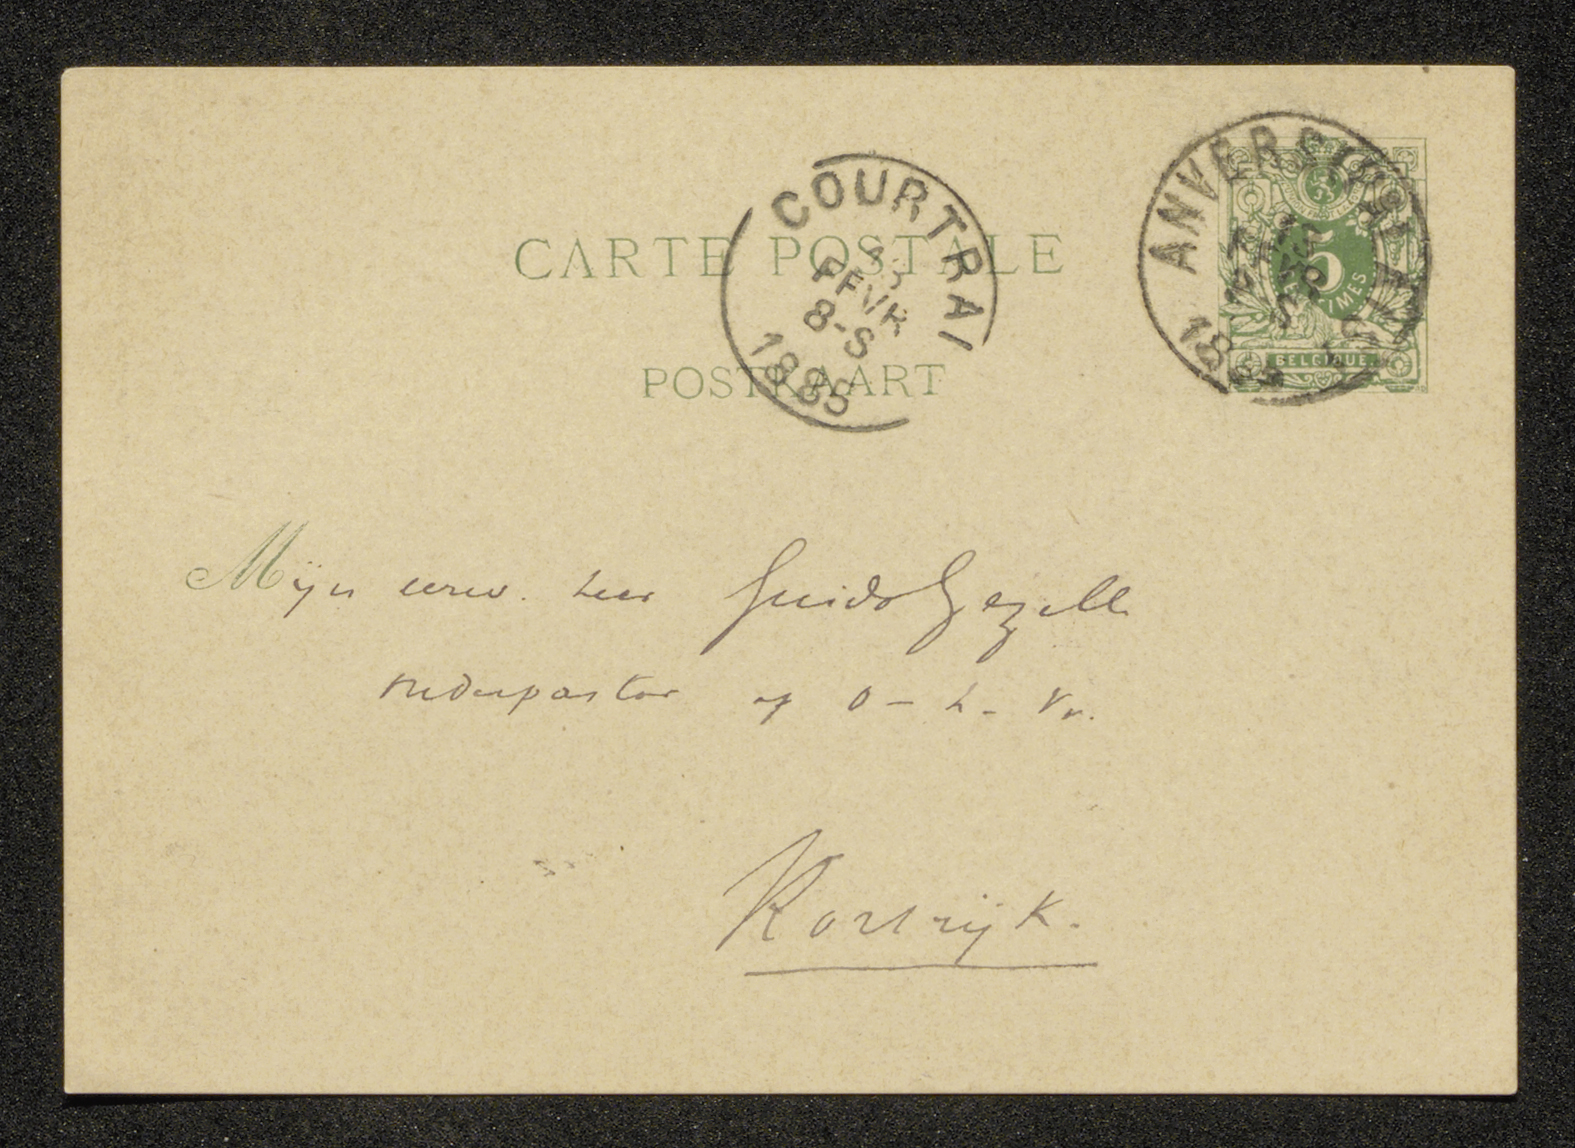 CARTE POSTALE
POSTKAART
COURTRAI
FEVR
8-S
1885
ANVERS
5
CENTIMES
BELGIQUE
Mijn eerw. heer Guido Gezelle
onderpastor op O-L-Vr.
Kortrijk.